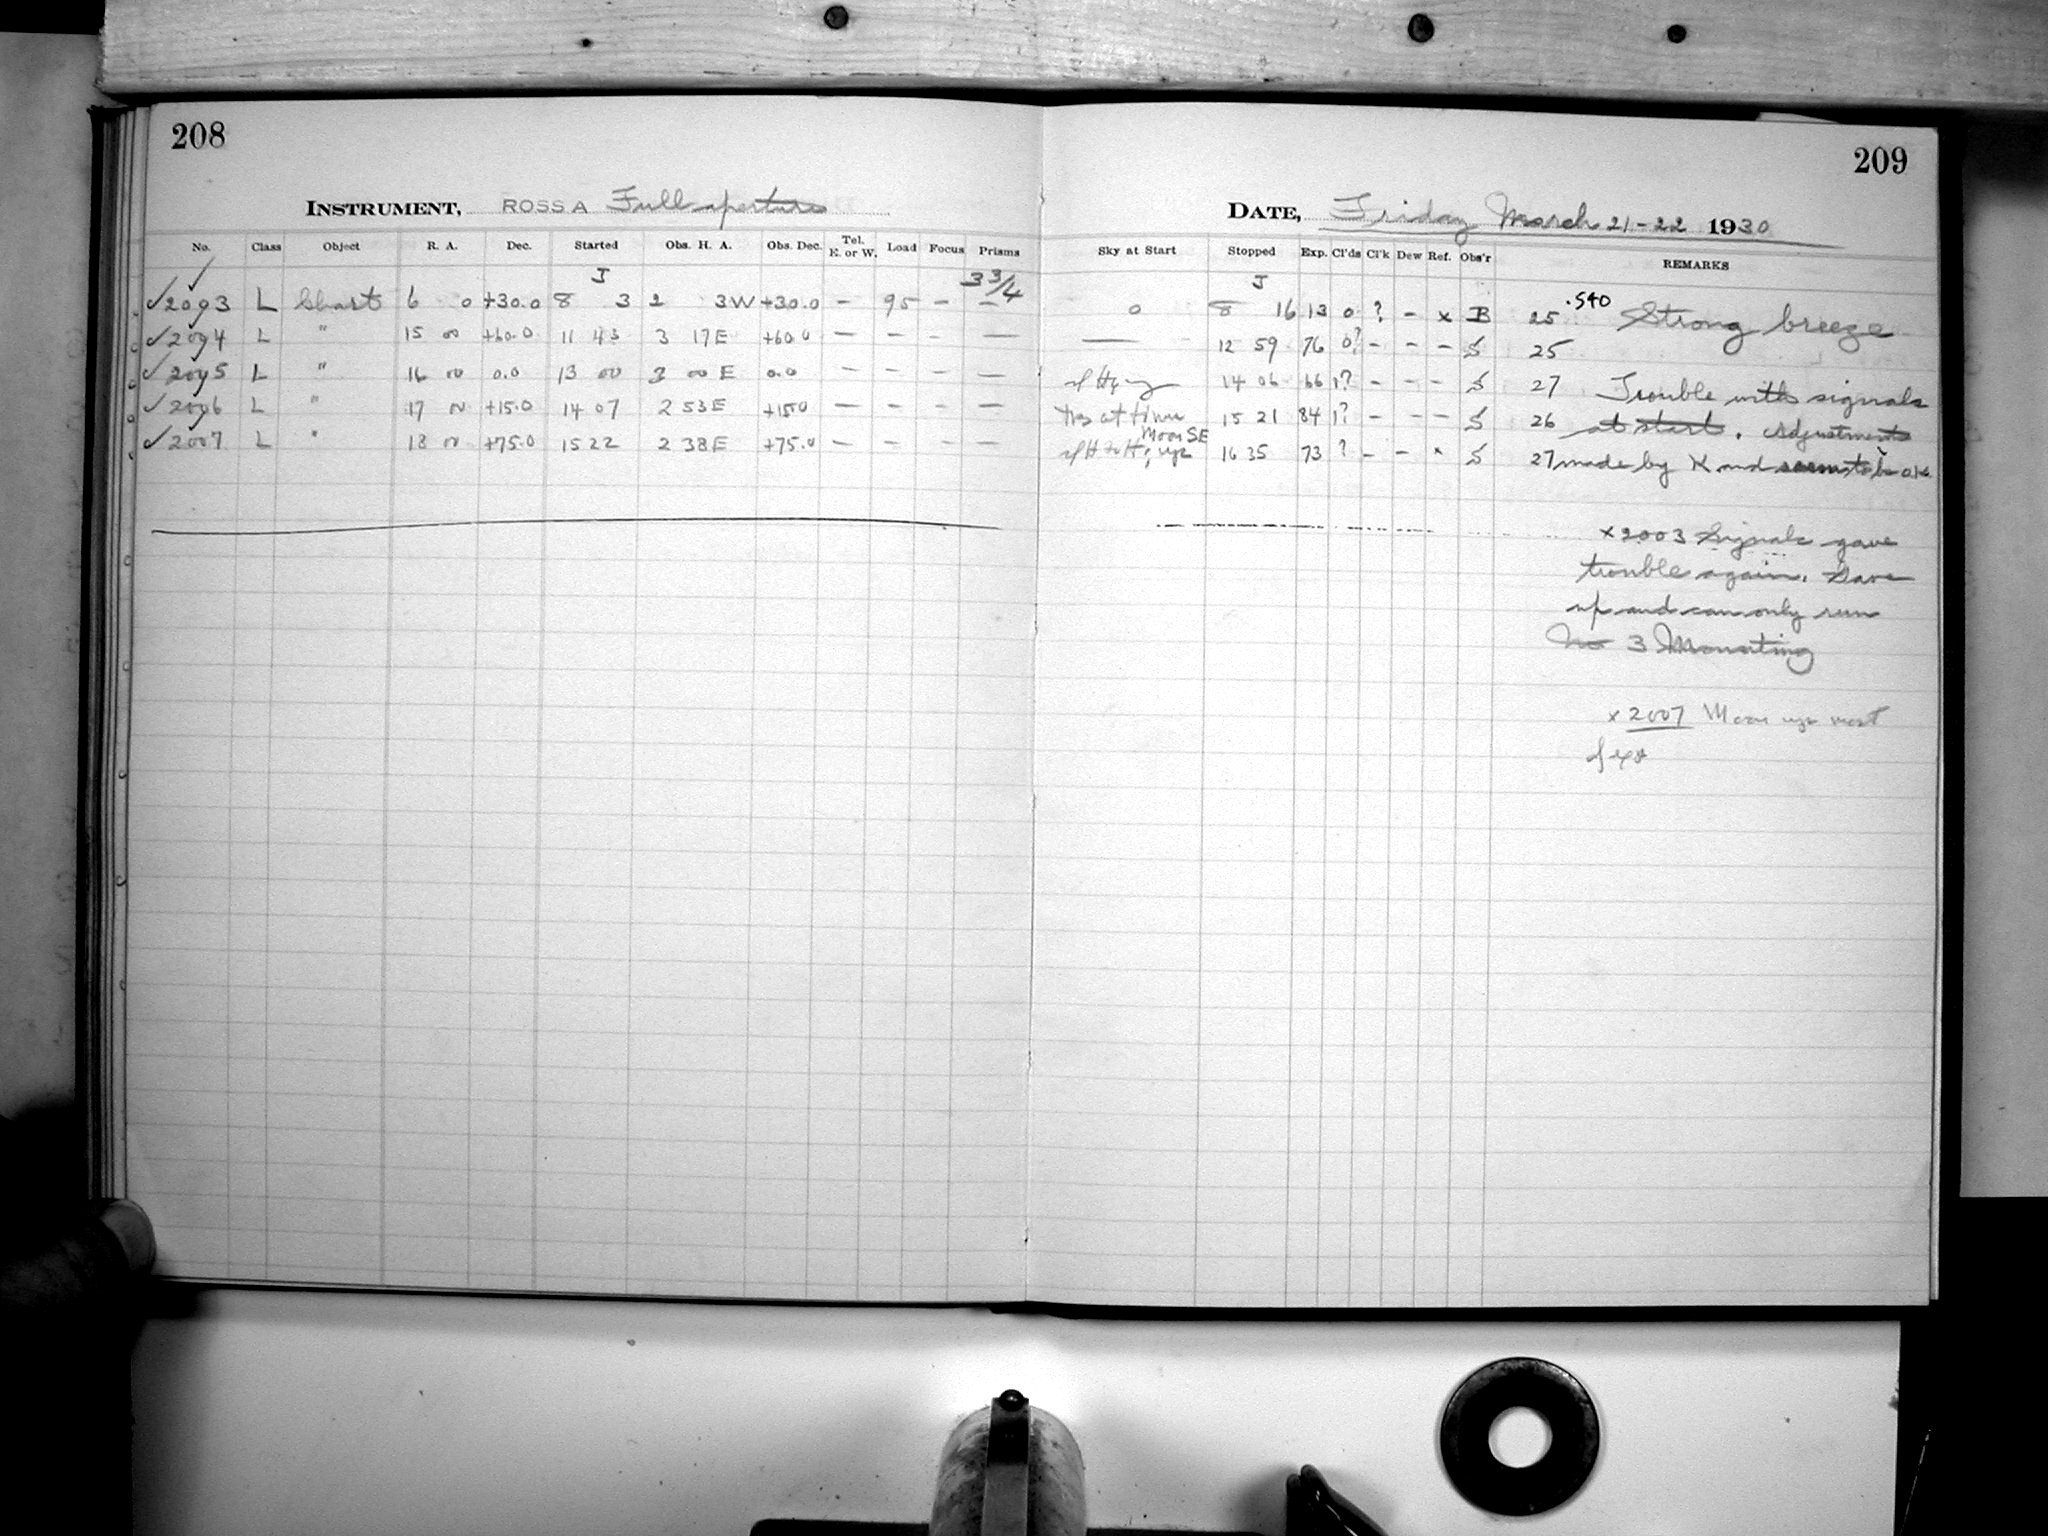 208
INSTRUMENT, ROSS A Full aperture
No. Class Object R. A. Dec. Started Obs. H. A. Obs. Dec. Tel. E. or W. Load Focus Prisms
J 3 3/4
✓ 2003 L Chart 6 0 +30.0 8 3 2 3W +30.0 – 95 – –
✓ 2004 L " 15 00 +60.0 11 43 3 17E +60.0 – – – –
✓ 2005 L " 16 00 0.0 13 00 3 00 E 0.0 – – – –
✓ 2006 L " 17 00 +15.0 14 07 2 53E +15.0 – – – –
✓ 2007 L " 18 00 +75.0 15 22 2 38E +75.0 – – – –
209
DATE, Friday March 21-22 1930
Sky at Start Stopped Exp. Cl'ds Cl'k Dew Ref. Obs'r REMARKS
J
0 8 16 13 0 ? – x B 25 .540 Strong breeze
— 12 59 76 0? – – – S 25
14 06 66 1? – – – S 27 Trouble with signals
at times 15 21 84 1? – – – S 26 at start. Adjustments
Moon SE
16 35 73 ? – – x S 27 made by K and seems to be O.K.
x 2003 Signals gave
trouble again. Gave
up and can only run
No 3 Mounting
x 2007 Moon up most
of exp